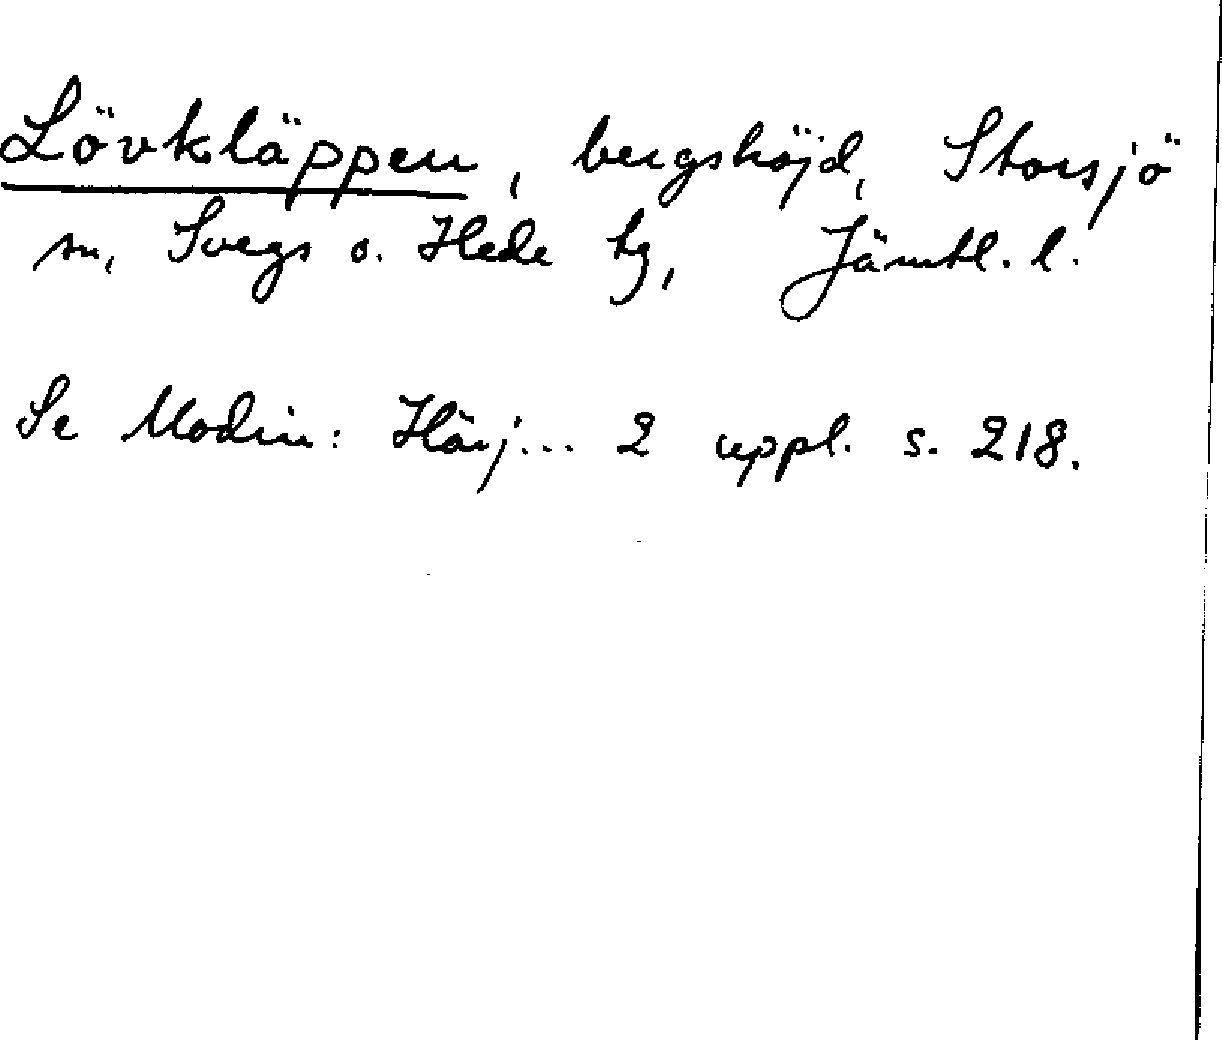 Lövkläppen, bergshöjd, Storsjö
sn, Svegs o. Hede tg, Jämtl. l.
Se Modin: Härj... 2 uppl. s. 218.